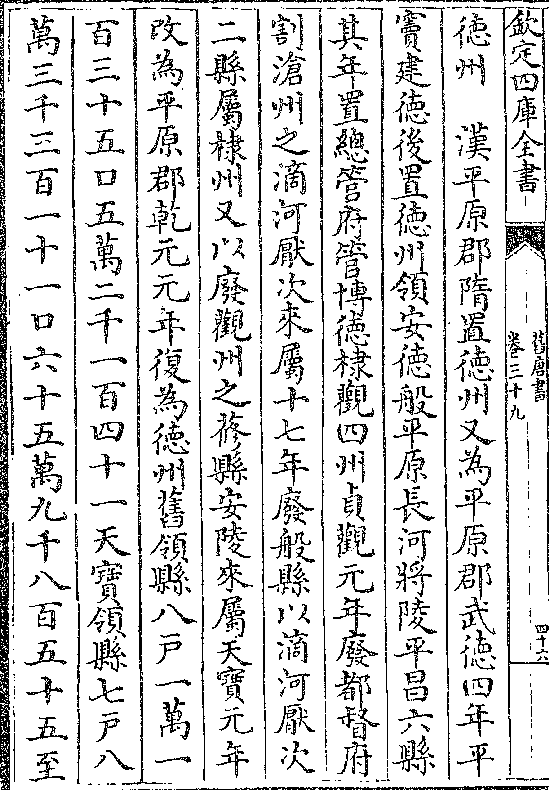 欽定四庫全書
舊唐書
卷三十九
四十六
德州　漢平原郡隋置德州又為平原郡武德四年平
竇建德後置德州領安德般平原長河將陵平昌六縣
其年置總管府管博德棣觀四州貞觀元年廢都督府
割滄州之滴河厭次來屬十七年廢般縣以滴河厭次
二縣屬棣州又以廢觀州之蓚縣安陵來屬天寶元年
改為平原郡乾元元年復為德州舊領縣八戸一萬一
百三十五口五萬二千一百四十一天寶領縣七戸八
萬三千三百一十一口六十五萬九千八百五十五至